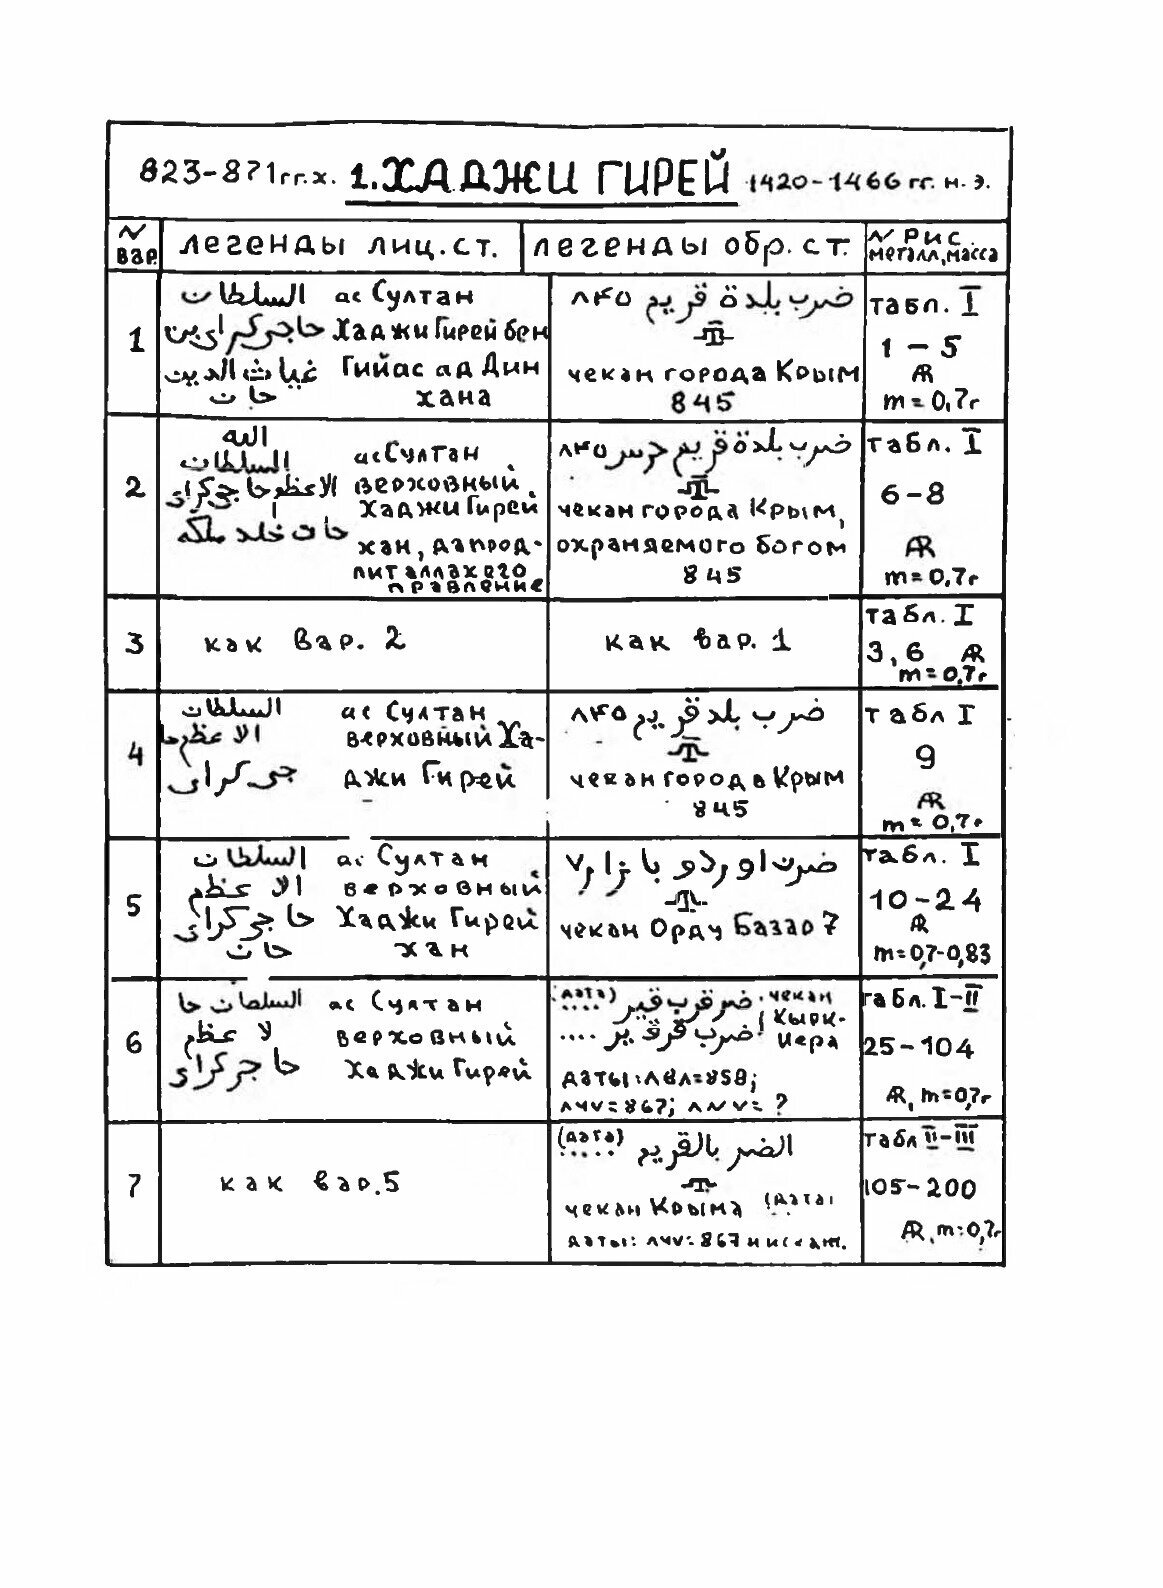 823-871гг.х. 1. ХАДЖИ ГИРЕЙ 1420-1466 гг. н. э.
№ вар. легенды лиц. ст. легенды обр. ст. № рис. металл, масса
1
السلطان
حاجى كراى بن
غياث الدين
خان
ас Султан
Хаджи Гирей бен
Гийас ад Дин
хана
ضرب بلدة قريم ٨٤٥
чекан города Крым
845
табл. I
1 - 5
AR
m = 0,7г
2
الله
السلطان
الاعظم حاجى كراى
خان خلد ملكه
ас Султан
верховный
Хаджи Гирей
хан, да прод-
лит аллах его
правление
ضرب بلدة قريم حرس ٨٤٥
чекан города Крым,
охраняемого богом
845
табл. I
6-8
AR
m = 0,7г
3
как вар. 2
как вар. 1
табл. I
3, 6 AR
m = 0,7г
4
السلطان
الاعظم حا
جى كراى
ас Султан
верховный Ха-
джи Гирей
ضرب بلد قريم ٨٤٥
чекан города Крым
845
табл I
9
AR
m = 0,7г
5
السلطان
الاعظم
حاجى كراى
خان
ас Султан
верховный
Хаджи Гирей
хан
ضرب اوردو بازار ٧
чекан Орду Базар 7
табл. I
10-24
AR
m=0,7-0,83
6
السلطان حا
لاعظم
حاجى كراى
ас Султан
верховный
Хаджи Гирей
(дата) .....
ضرب قرقير
....
чекан
Кырк-
иера
даты: ٨٥٨=858;
٨٦٧=867; = ?
табл. I-II
25-104
AR, m=0,7г
7
как вар. 5
(дата) .....
الضر بالقريم
чекан Крыма (дата)
даты: ٨٦٧=867 и искаж.
табл II-III
105-200
AR, m=0,7г